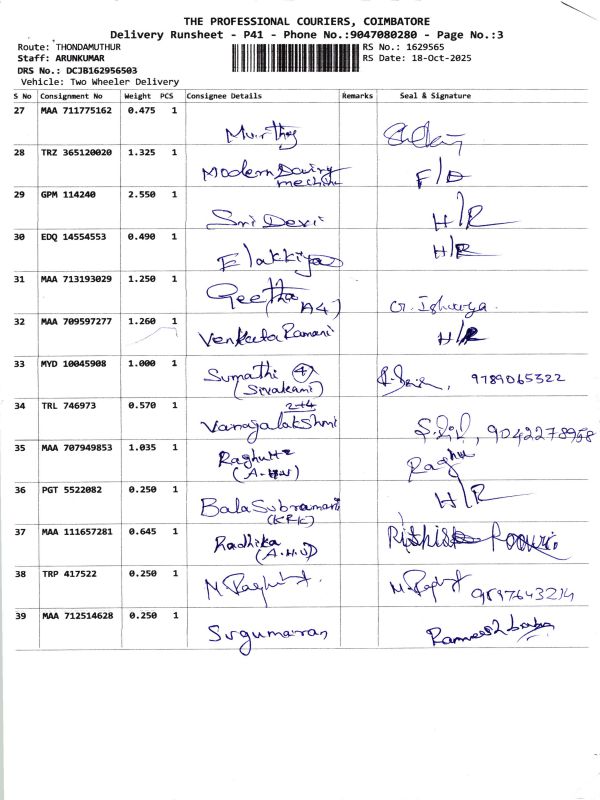 THE PROFESSIONAL COURIERS, COIMBATORE
Delivery Runsheet - P41 - Phone No.:9047080280 - Page No.:3
Route: THONDAMUTHUR
RS No.: 1629565
Staff: ARUNKUMAR
RS Date: 18-Oct-2025
DRS No.: DCJB162956503
Vehicle: Two Wheeler Delivery
S No Consignment No Weight PCS Consignee Details Remarks Seal & Signature
27 MAA 711775162 0.475 1
Murthy
28 TRZ 365120020 1.325 1
Modern Dairy F/D
mechine
29 GPM 114240 2.550 1
Sri Devi H/R
30 EDQ 14554553 0.490 1
Elakkiya H/R
31 MAA 713193029 1.250 1
Geetha (A4) G. Ishwarya.
32 MAA 709597277 1.260 1
Venkata Ramani H/R
33 MYD 10045908 1.000 1
Sumathi 4 9789065322
(Sivakami)
34 TRL 746973 0.570 1
2+4
Vanajalakshmi 9042278958
35 MAA 707949853 1.035 1
Raghu Raghu
36 PGT 5522082 0.250 1
Bala Subramani H/R
(KRK)
37 MAA 111657281 0.645 1
Radhika
38 TRP 417522 0.250 1
9597643214
39 MAA 712514628 0.250 1
Sugumaran